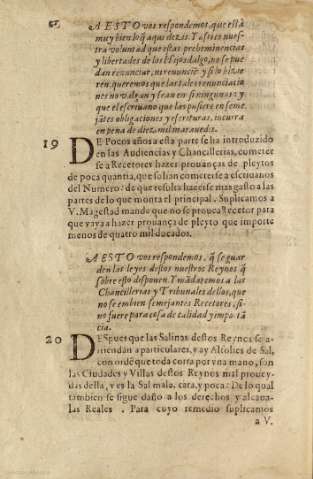 A ESTO vos respondemos, que està
muy bien lo q̃ aqui dezis. Y assi es nues-
tra voluntad que estas preheminencias
y libertades de los Hijosdalgo, no se pue-
dan renunciar, ni renuncie: y si lo hizie
ren, queremos que las tales renunciacio
nes no valgan y sean en si ningunas: y
que el escriuano que las pusiere en seme-
jãtes obligaciones y escrituras, incurra
en pena de diez mil marauedis.
19 DE Pocos años a esta parte se ha introduzido
en las Audiencias y Chancillerias, cometer
se a Recetores hazer prouanças de pleytos
de poca quantia, que solian cometerse a escriuanos
del Numero: de que resulta hazerse mas gasto a las
partes de lo que monta el principal. Suplicamos a
V. Magestad mande que no se prouea Recetor para
que vaya a hazer prouança de pleyto que importe
menos de quatro mil ducados.
A ESTO vos respondemos, q̃ se guar
den las leyes destos nuestros Reynos q̃
sobre esto disponen. Y mãdaremos a las
Chancillerias y Tribunales dellos, que
no se embien semejantes Recetores, si-
no fuere para cosa de calidad y impor tã
cia.
20 DEspues que las Salinas destos Reynos se a-
rriendan a particulares, y ay Alfolies de Sal,
con ordẽ que toda corra por vna mano, son
las Ciudades y Villas destos Reynos mal prouey-
das della, y es la Sal mala, cara, y poca: De lo qual
tambien se sigue daño a los derechos y alcaua-
las Reales. Para cuyo remedio suplicamos
a V.